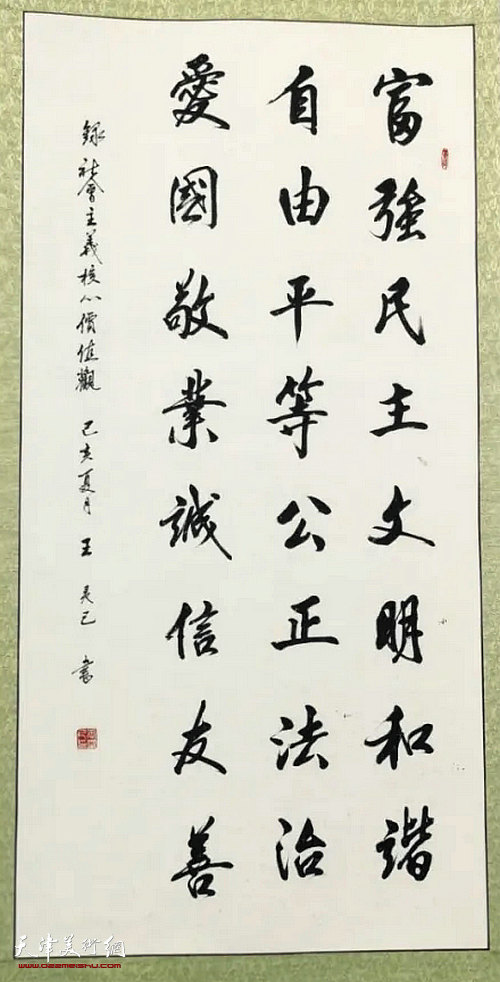 富強民主文明和諧
自由平等公正法治
愛國敬業誠信友善
錄社會主義核心價值觀 己亥夏月 王
書
天津美術網
www.022meishu.com